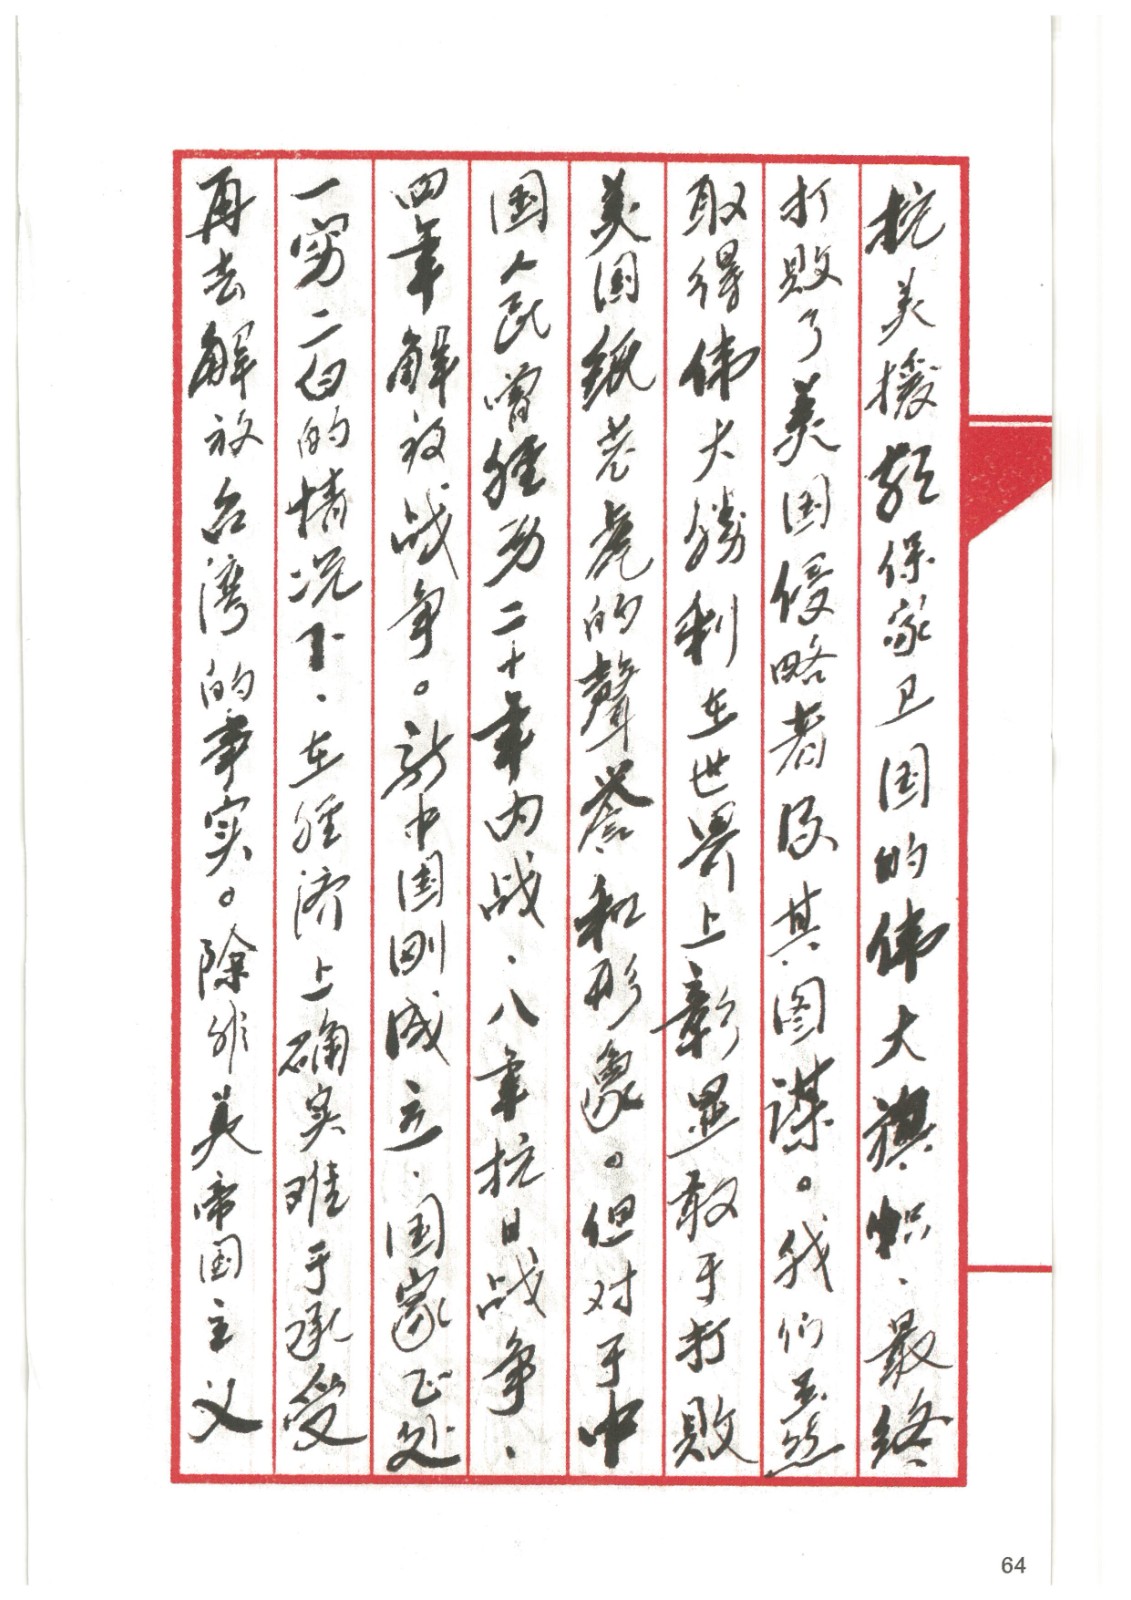 抗美援朝保家卫国的伟大旗帜、最终
打败了美国侵略者及其图谋。我们虽然
取得伟大勝利在世界上彰显敢于打败
美国纸老虎的聲誉和形象。但对于中
国人民曾经历二十年内战、八年抗日战争、
四年解放战争。新中国刚成立、国家正处
一穷二白的情况下、在经济上确实难于承受
再去解放台湾的事实。除非美帝国主义
64